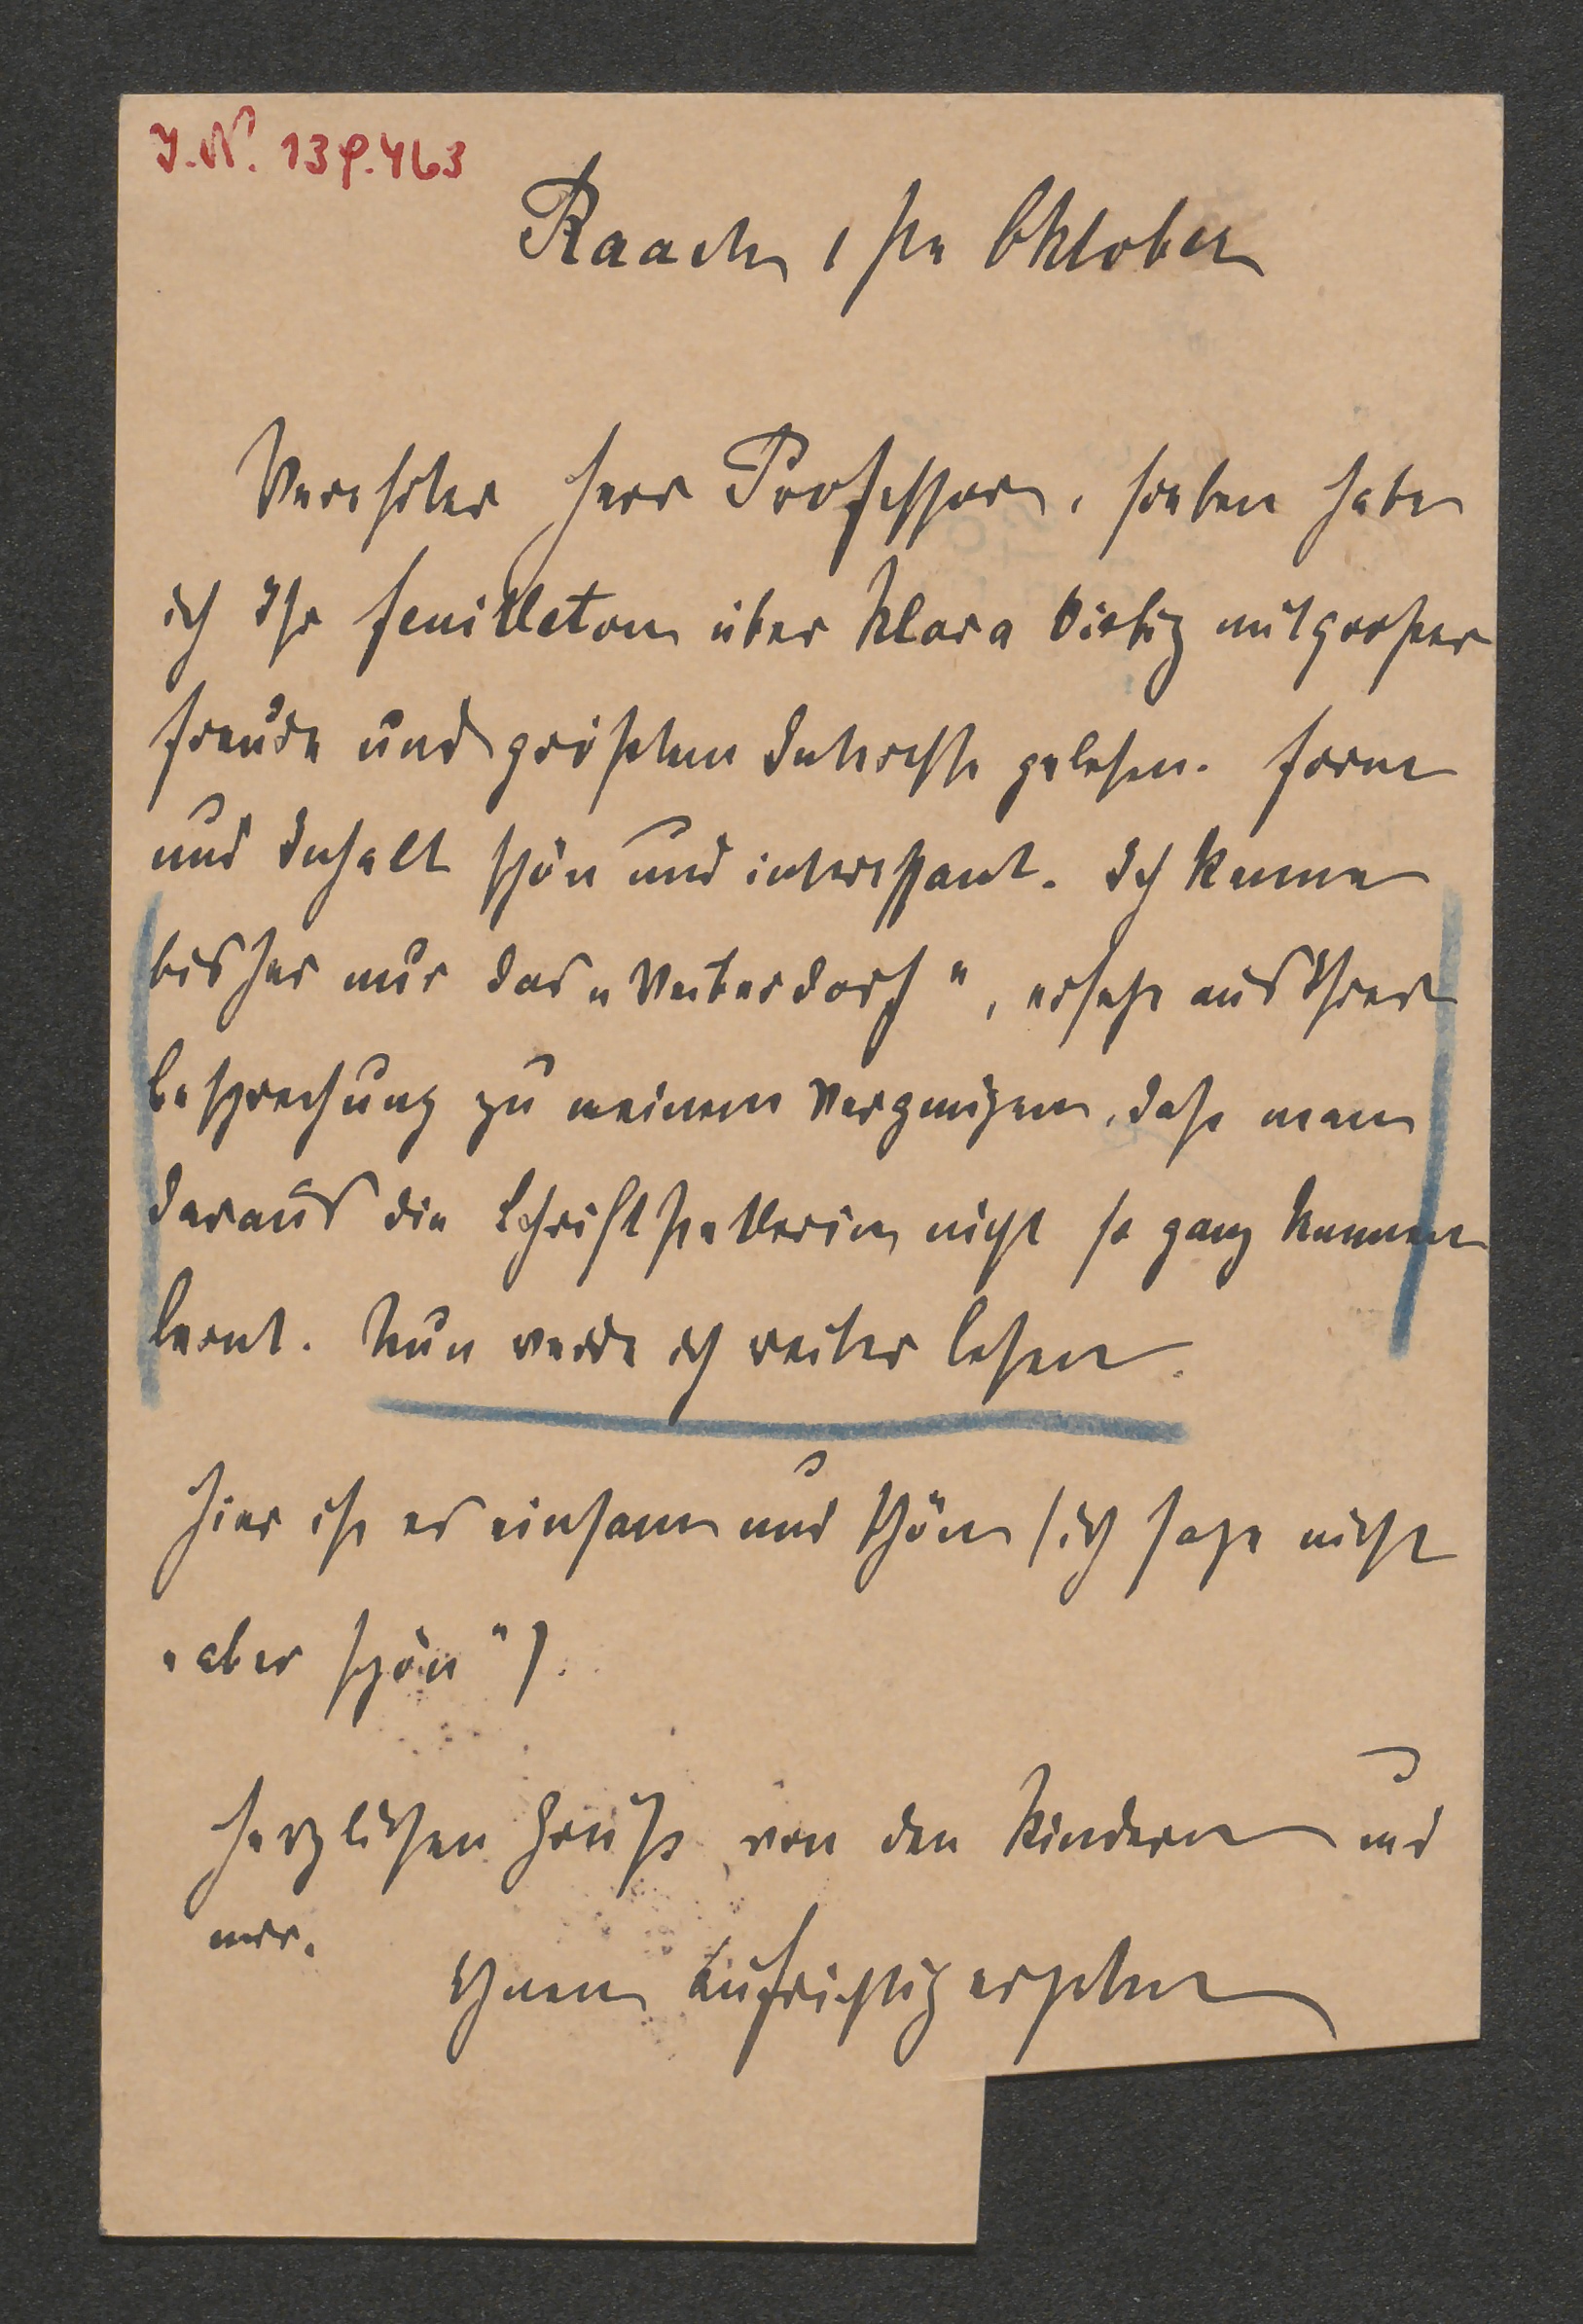 J.N. 139.463
Raach, 1ten Oktober
Verehrter Herr Professor, soeben habe
ich Ihr Feuilleton über Klara Viebig mit großer
Freude und größtem Interesse gelesen. Form
und Inhalt schön und interessant. Ich kenne
bisher nur das „Weiberdorf", ersehe aus Ihrer
Besprechung zu meinem Vergnügen, daß man
daraus die Schriftstellerin nicht so ganz kennen
lernt. Nun werde ich weiter lesen.
Hier ist es einsam und schön (ich sage nicht
„aber schön").
Herzlichen Gruß von den Kindern und
mir.
Ihnen aufrichtig